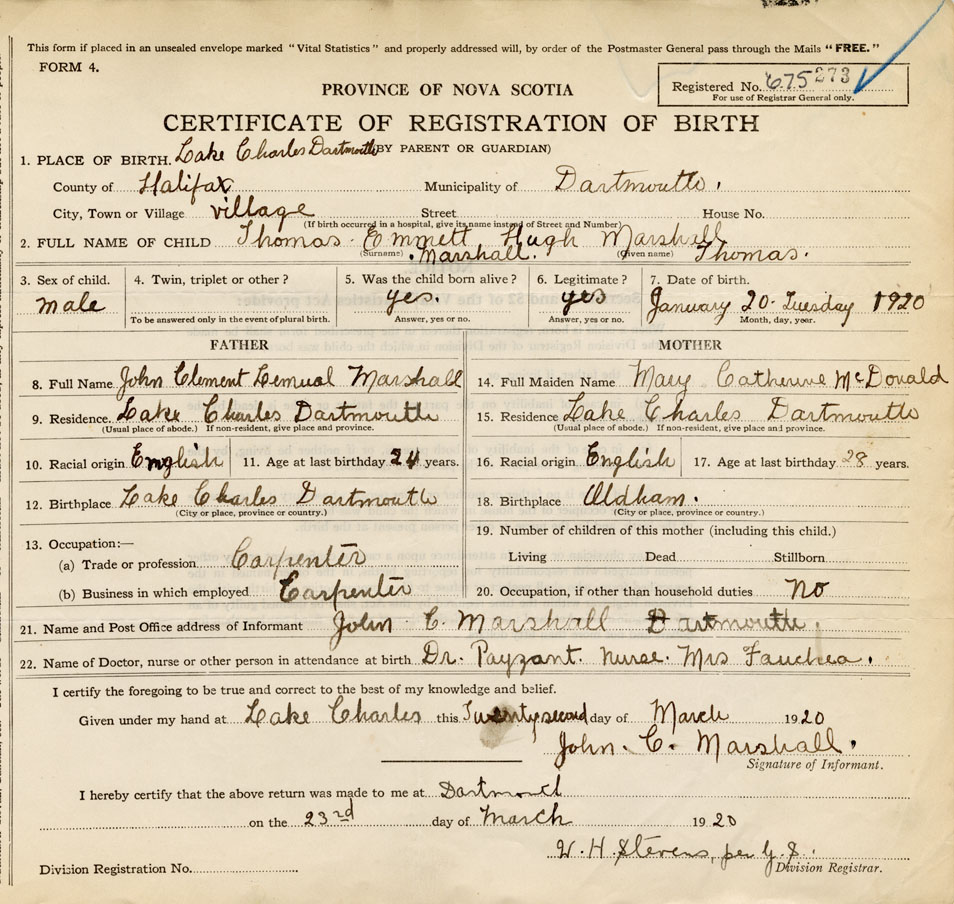 This form if placed in an unsealed envelope marked "Vital Statistics" and properly addressed will, by order of the Postmaster General pass through the Mails "FREE."
FORM 4.
Registered No. 675273
For use of Registrar General only.
PROVINCE OF NOVA SCOTIA
CERTIFICATE OF REGISTRATION OF BIRTH
(BY PARENT OR GUARDIAN)
1. PLACE OF BIRTH. Lake Charles Dartmouth
County of Halifax Municipality of Dartmouth.
City, Town or Village village Street House No.
(If birth occurred in a hospital, give its name instead of Street and Number)
2. FULL NAME OF CHILD Thomas Emmett Hugh Marshall
(Surname) Marshall. (Given name) Thomas.
3. Sex of child. male
4. Twin, triplet or other?
To be answered only in the event of plural birth.
5. Was the child born alive? yes.
Answer, yes or no.
6. Legitimate? yes
Answer, yes or no.
7. Date of birth. January 20. Tuesday 1920
Month, day, year.
FATHER
8. Full Name John Clement Lemual Marshall
9. Residence. Lake Charles Dartmouth
(Usual place of abode.) If non-resident, give place and province.
10. Racial origin English 11. Age at last birthday 24 years.
12. Birthplace Lake Charles Dartmouth
(City or place, province or country.)
13. Occupation:—
(a) Trade or profession Carpenter
(b) Business in which employed Carpenter
MOTHER
14. Full Maiden Name Mary Catherine McDonald
15. Residence Lake Charles Dartmouth
(Usual place of abode.) If non-resident, give place and province.
16. Racial origin English 17. Age at last birthday 28 years.
18. Birthplace Oldham.
(City or place, province or country.)
19. Number of children of this mother (including this child.)
Living Dead Stillborn
20. Occupation, if other than household duties No
21. Name and Post Office address of Informant John C. Marshall Dartmouth.
22. Name of Doctor, nurse or other person in attendance at birth Dr. Payzant. nurse. Mrs
I certify the foregoing to be true and correct to the best of my knowledge and belief.
Given under my hand at Lake Charles this Twenty second day of March 1920
John. C. Marshall.
Signature of Informant.
I hereby certify that the above return was made to me at Dartmouth
on the 23rd day of March 1920
W. H. Stevens, per
Division Registration No. Division Registrar.